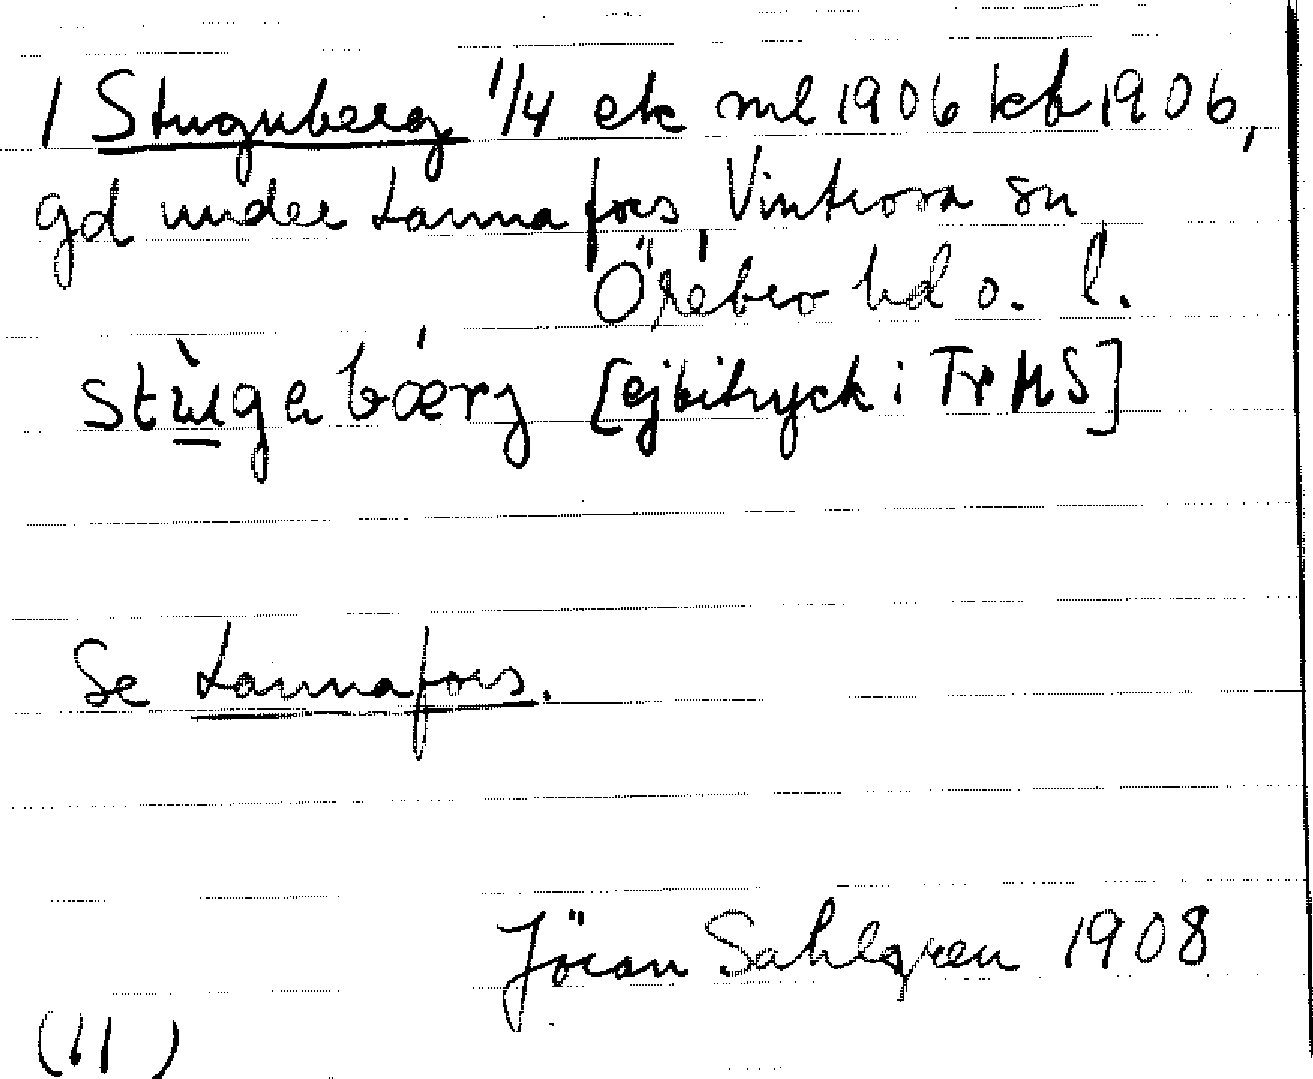 1 Stuguberg 1/4 ek ml 1906 kb 1906,
gd under Lannafors Vintrosa sn
Örebro hd o. l.
stùgabærj [ej bitryck i Tr MS]
Se Lannafors.
Jöran Sahlgren 1908
(11)